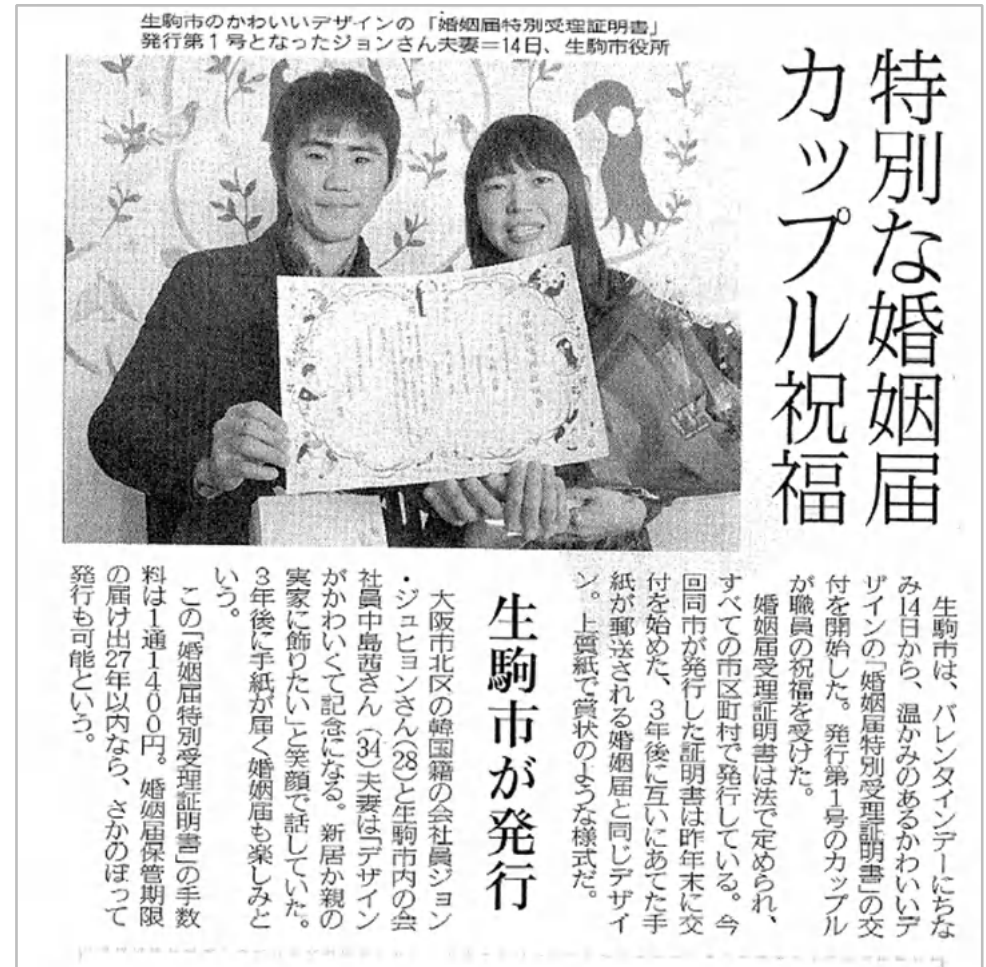 生駒市のかわいいデザインの「婚姻届特別受理証明書」
発行第1号となったジョンさん夫妻＝14日、生駒市役所
特別な婚姻届
カップル祝福
生駒市は、バレンタインデーにちな
み14日から、温かみのあるかわいいデ
ザインの「婚姻届特別受理証明書」の交
付を開始した。発行第1号のカップル
が職員の祝福を受けた。
婚姻届受理証明書は法で定められ、
すべての市区町村で発行している。今
回同市が発行した証明書は昨年末に交
付を始めた、3年後に互いにあてた手
紙が郵送される婚姻届と同じデザイ
ン。上質紙で賞状のような様式だ。
生駒市が発行
大阪市北区の韓国籍の会社員ジョン
・ジュヒョンさん(28)と生駒市内の会
社員中島茜さん(34)夫妻は「デザイン
がかわいくて記念になる。新居か親の
実家に飾りたい」と笑顔で話していた。
3年後に手紙が届く婚姻届も楽しみと
いう。
この「婚姻届特別受理証明書」の手数
料は1通1400円。婚姻届保管期限
の届け出27年以内なら、さかのぼって
発行も可能という。